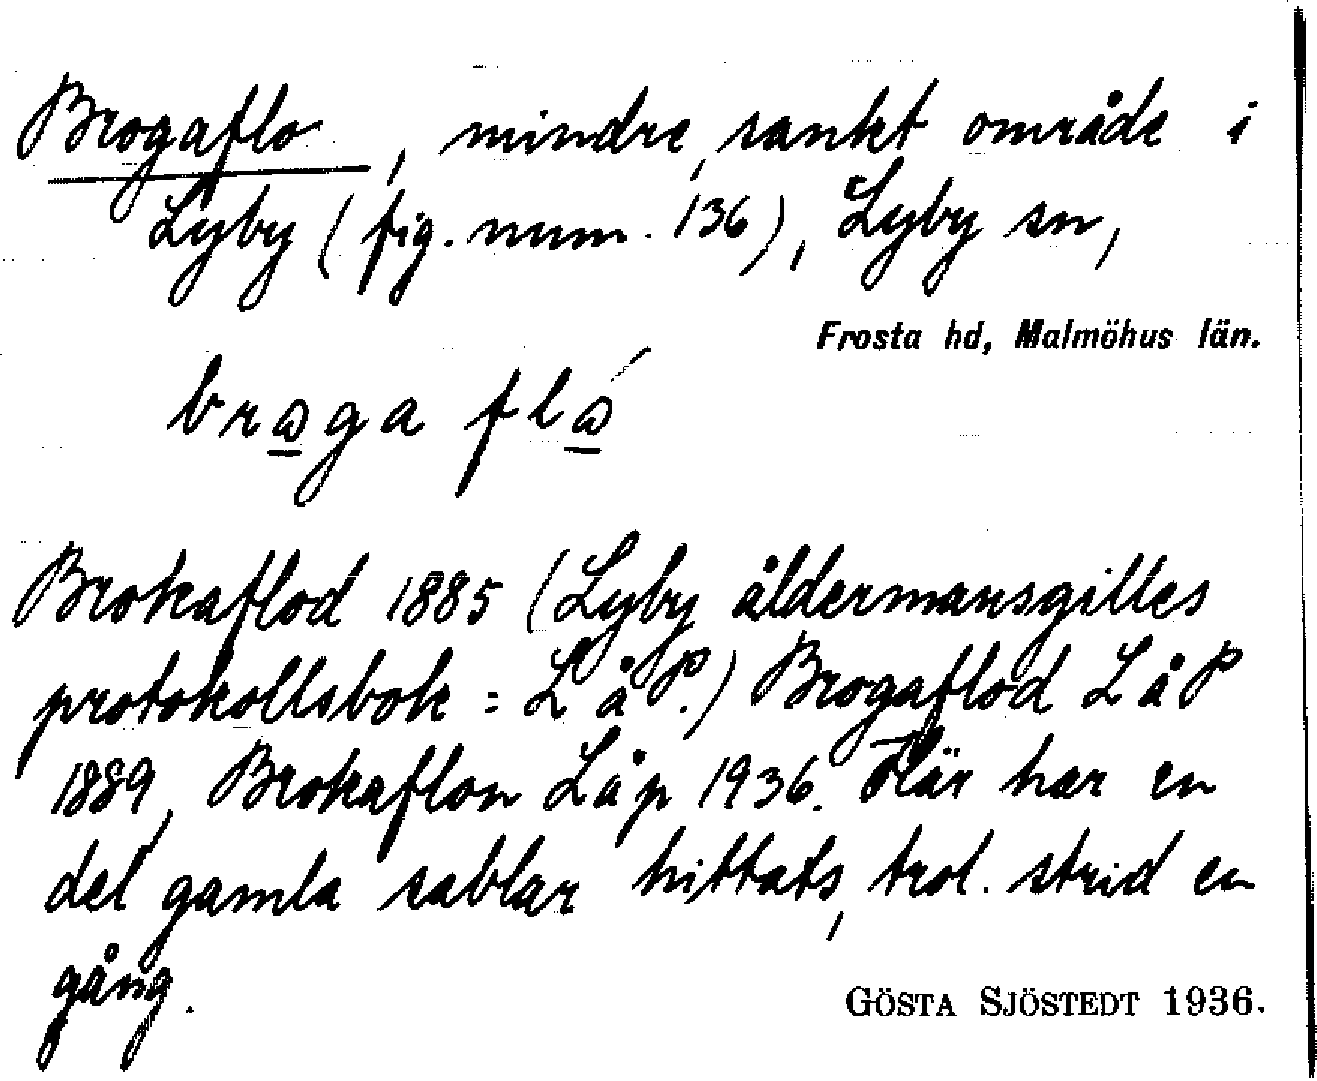 Brogaflo, mindre, sankt område i
Lyby (fig. num. 136), Lyby sn,
Frosta hd, Malmöhus län.
Brokaflod 1885 (Lyby åldermansgilles
protokollsbok = LåP.) Brogaflod LåP
1889, Brokaflon Låp 1936. Här har en
del gamla sablar hittats, trol. strid en
gång.
GÖSTA SJÖSTEDT 1936.